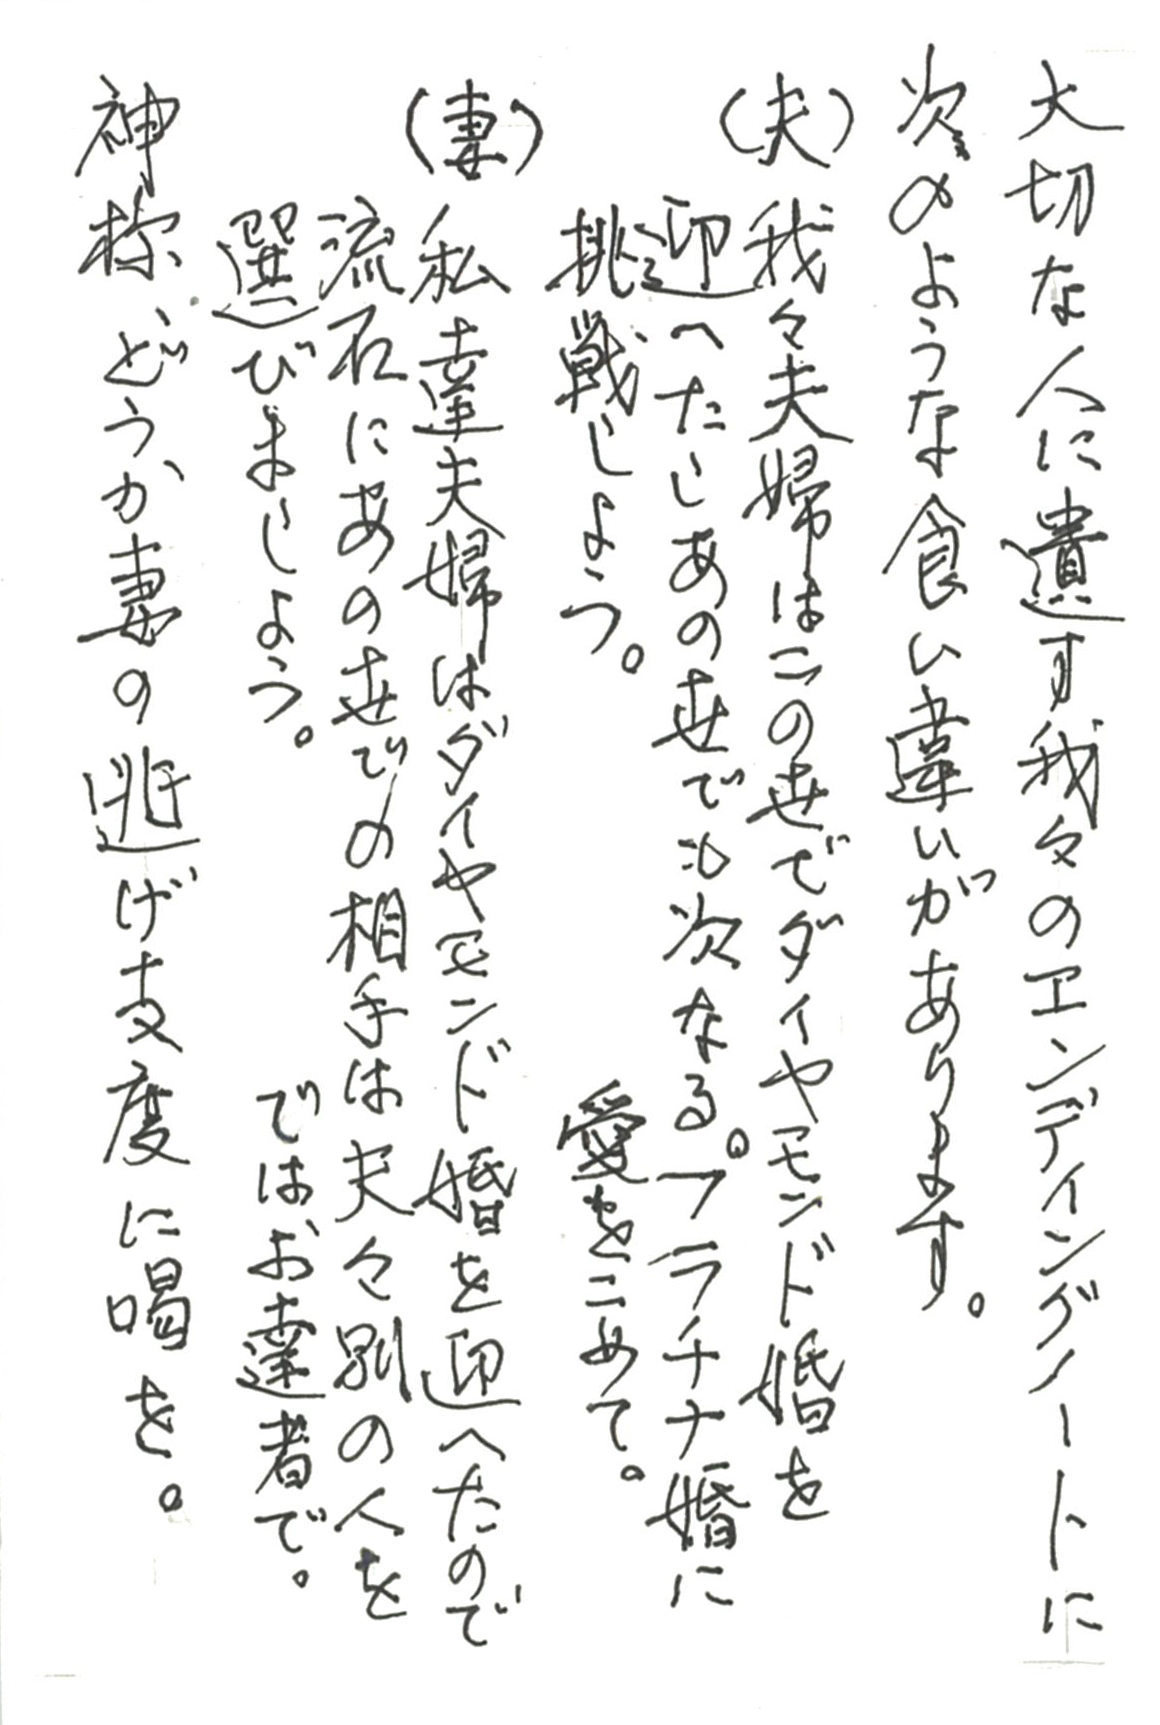 大切な人に遺す我々のエンディングノートに
次のような食い違いがあります。
(夫)我々夫婦はこの世でダイヤモンド婚を
迎へたしあの世でも次なる。プラチナ婚に
挑戦しよう。 愛をこめて。
(妻)私達夫婦はダイヤモンド婚を迎へたので
流石にあの世での相手は夫々別の人を
選びましょう。 ではお達者で。
神様どうか妻の逃げ支度に喝を。